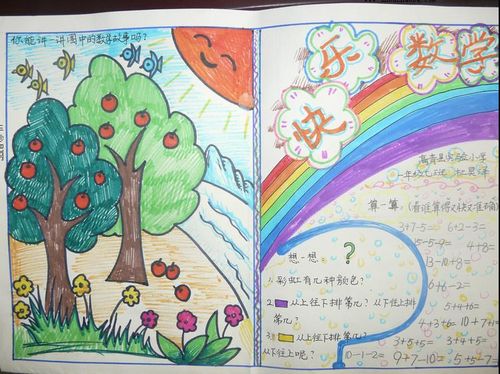 你能讲一讲图中的数学故事吗?
快乐数学
高青县实验小学
算一算:(看谁算得又快又准确)
3+7-5= 6+2-3=
15-5-9= 4+8=
13-10+8=
6+6-2=
5+4+6=
4+3+6= 10+7+1=
3+5+5= 3+4+5=
10-1-2= 9+7-10= 5+5-7=
想一想:?
1. 彩虹有几种颜色?
2. 从上往下排第几?从下往上排
第几?
3. 从上往下排第几?
从下往上呢?